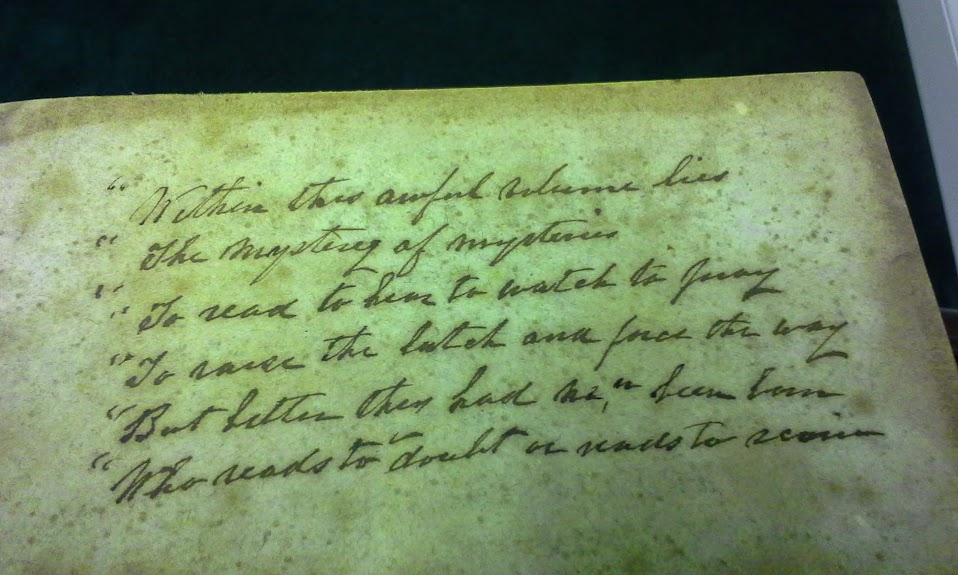 “ Within this awful volume lies
“ The mystery of mysteries
“ To read to hear to watch to pray
“ To raise the latch and force the way
“ But better they had ne,"r been born
“ Who reads to doubt or reads to scorn